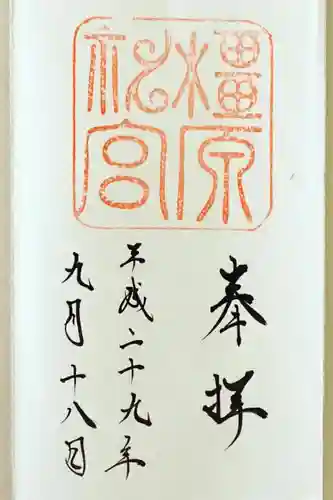 橿原
神宮
奉拝
平成二十九年
九月十八日